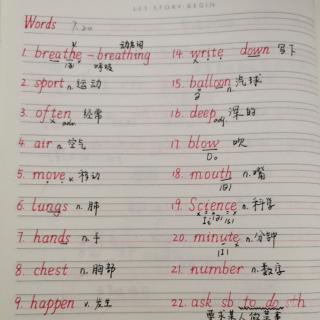 LET STORY BEGIN
Words 7.20
动名词
1. breathe – breathing
/ð/ 呼吸
2. sport n. 运动
3. often adv. 经常
4. air n. 空气
5. move v. 移动
6. lungs n. 肺
7. hands n. 手
8. chest n. 胸部
9. happen v. 发生
14. write down 写下
15. balloon n. 汽球
16. deep adj. 深的
17. blow 吹
18. mouth n. 嘴
/θ/
19. Science n. 科学
20. minute n. 分钟
/I/
21. number n. 数字
22. ask sb to do sth
要求某人做某事